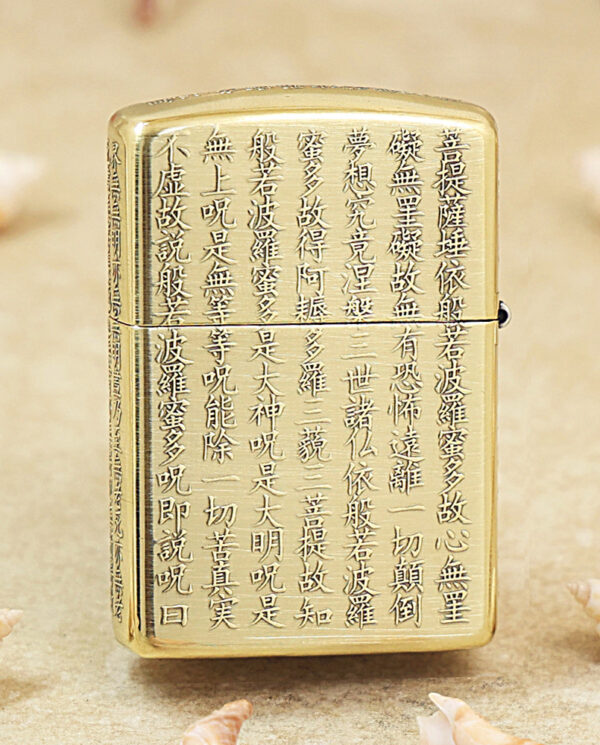 菩提薩埵依般若波羅蜜多故心無罣
礙無罣礙故無有恐怖遠離一切顛倒
夢想究竟涅槃三世諸仏依般若波羅
蜜多故得阿耨多羅三藐三菩提故知
般若波羅蜜多是大神呪是大明呪是
無上呪是無等等呪能除一切苦真実
不虚故説般若波羅蜜多呪即説呪曰